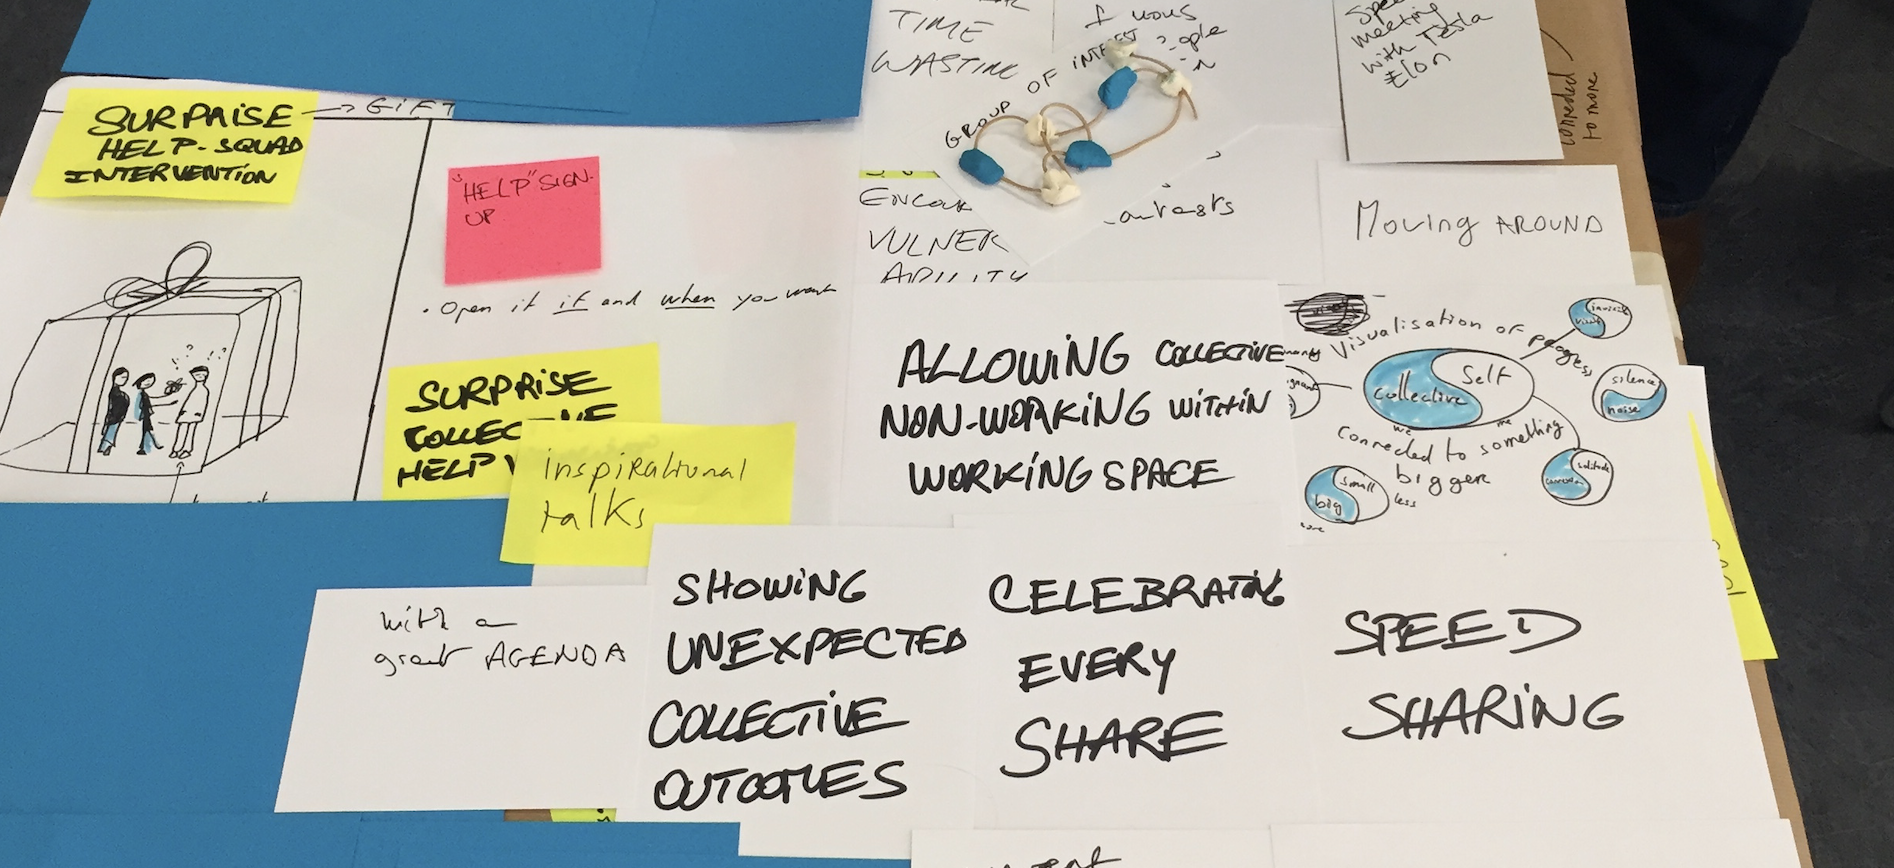 SURPRISE
HELP-SQUAD
INTERVENTION
GIFT
"HELP" SIGN-
UP
• Open it if and when you want
SURPRISE
HELP
inspirational
talks
TIME
WASTING
GROUP OF INTEREST
VULNER
ABILITY
meeting
with Tesla
Elon
to more
Moving AROUND
ALLOWING COLLECTIVE
NON-WORKING WITHIN
WORKING SPACE
Visualisation of progress
Self
Collective
we
me
connected to something
bigger
silence
noise
solitude
small
big
less
with a
great AGENDA
SHOWING
UNEXPECTED
COLLECTIVE
OUTCOMES
CELEBRATING
EVERY
SHARE
SPEED
SHARING